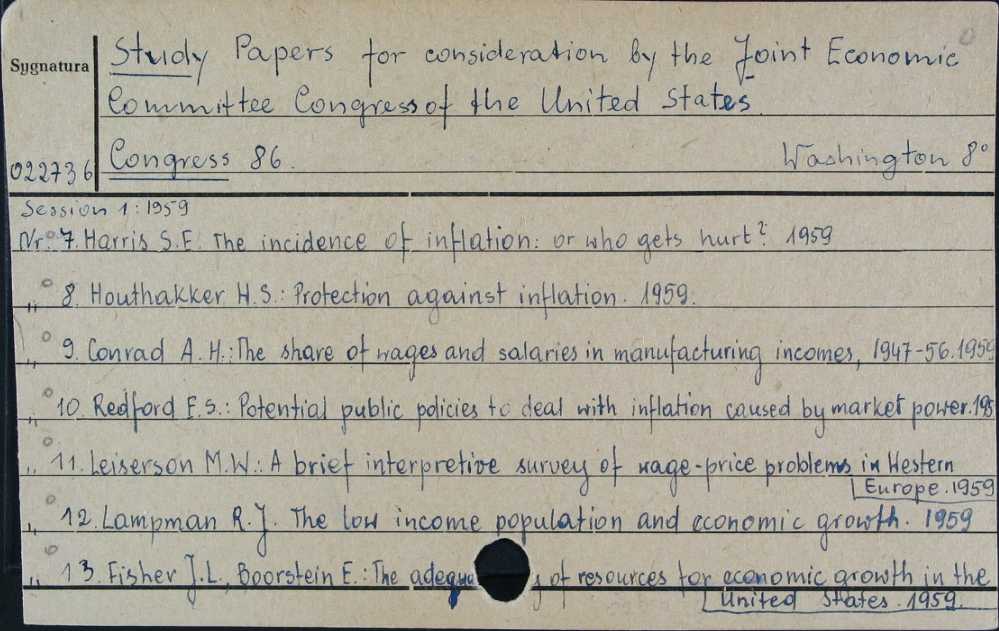 Study Papers for consideration by the Joint Economic
Sygnatura
Committee Congress of the United States
022736
Congress 86. Washington 8°
Session 1: 1959
Nr. 7. Harris S.E. The incidence of inflation: or who gets hurt? 1959
„ 8. Houthakker H.S.: Protection against inflation. 1959.
„ 9. Conrad A.H.: The share of wages and salaries in manufacturing incomes, 1947-56. 1959
„ 10. Redford E.S.: Potential public policies to deal with inflation caused by market power. 195
„ 11. Leiserson M.W.: A brief interpretive survey of wage-price problems in Western
Europe. 1959
„ 12. Lampman R.J. The low income population and economic growth. 1959
„ 13. Fisher J.L., Boorstein E.: The adequa y of resources for economic growth in the
United States. 1959.